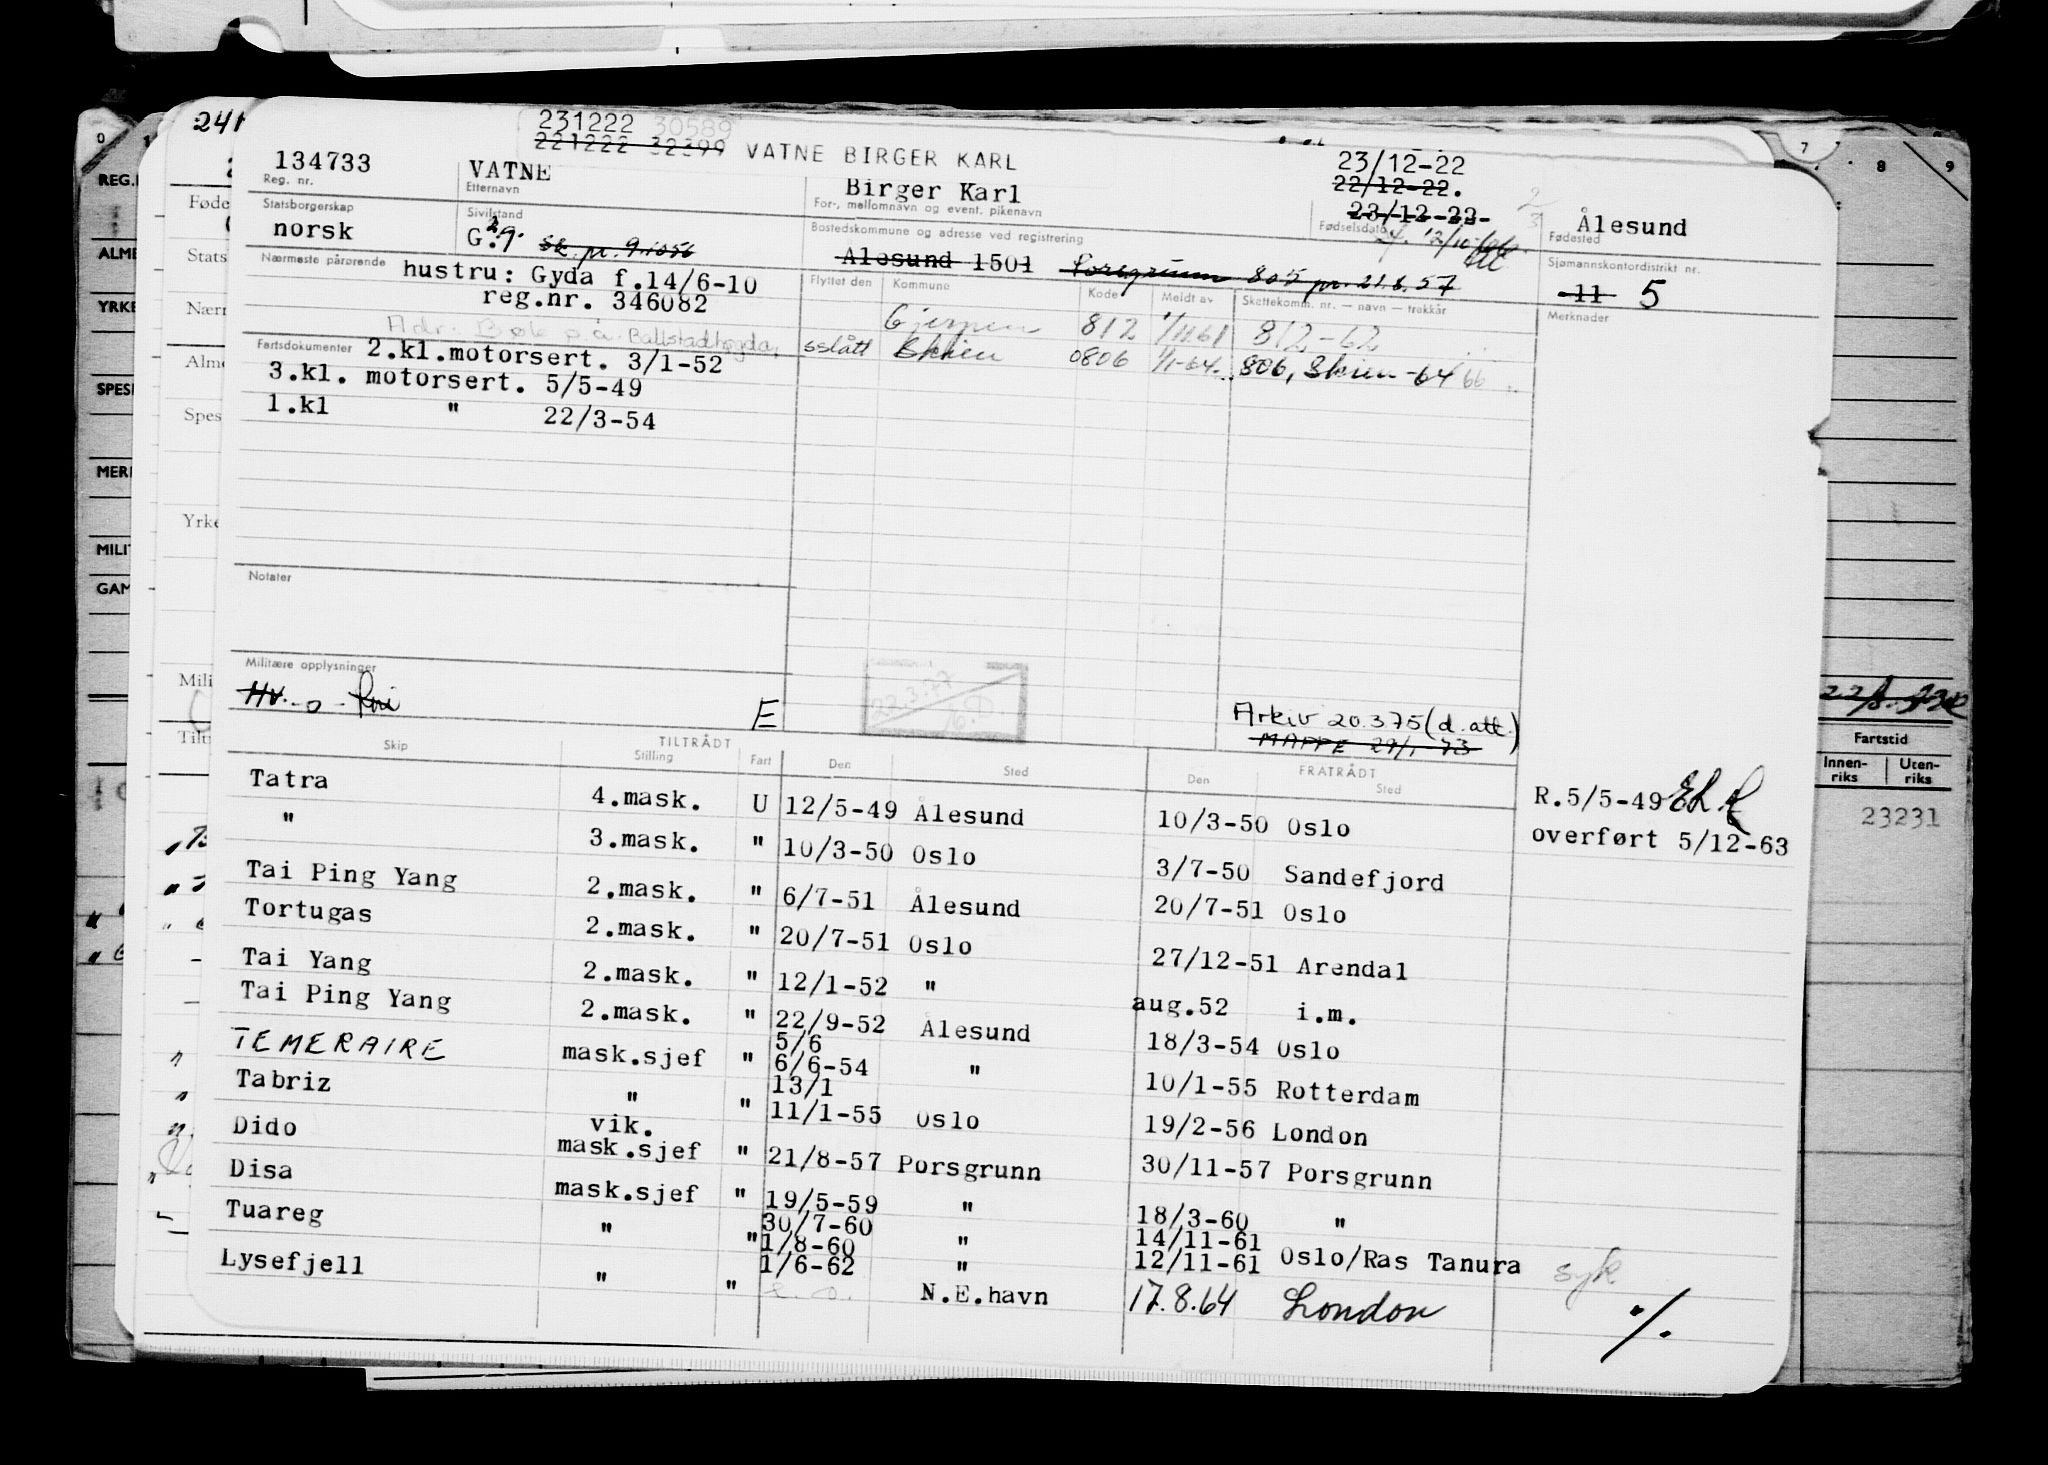 231222 30589
221222 32399 VATNE BIRGER KARL
134733
Reg. nr.
VATNE
Etternavn
Birger Karl
For-, mellomnavn og event. pikenavn
23/12-22
22/12-22.
23/12-22-
Fødselsdato
Ålesund
Fødested
Statsborgerskap
norsk
Sivilstand
G.
Bostedskommune og adresse ved registrering
Ålesund 1501 Porsgrunn 805 pr. 21.8.57
Sjømannskontordistrikt nr.
11 5
Nærmeste pårørende
hustru: Gyda f.14/6-10
reg.nr. 346082
Flyttet den Kommune Kode Meldt av Skattekomm. nr. — navn — trekkår
Merknader
Gjerpen 812 1/11.61 812-62
sslått Skien 0806 1/1-64. 806, Skien -64 66
Fartsdokumenter
2.kl.motorsert. 3/1-52
3.kl. motorsert. 5/5-49
1.kl " 22/3-54
Notater
Militære opplysninger
HV.
E
22.3.77
Arkiv 20.375 (d.att.)
MAPPE 29/1 73
Skip TILTRÅDT Stilling Fart Den Sted FRATRÅDT Den Sted
Tatra 4.mask. U 12/5-49 Ålesund 10/3-50 Oslo R.5/5-49
" 3.mask. " 10/3-50 Oslo 3/7-50 Sandefjord overført 5/12-63
Tai Ping Yang 2.mask. " 6/7-51 Ålesund 20/7-51 Oslo
Tortugas 2.mask. " 20/7-51 Oslo 27/12-51 Arendal
Tai Yang 2.mask. " 12/1-52 " aug.52 i.m.
Tai Ping Yang 2.mask. " 22/9-52 Ålesund 18/3-54 Oslo
5/6
TEMERAIRE mask.sjef " 6/6-54 " 10/1-55 Rotterdam
13/1
Tabriz " " 11/1-55 Oslo 19/2-56 London
vik.
Dido mask.sjef " 21/8-57 Porsgrunn 30/11-57 Porsgrunn
Disa mask.sjef " 19/5-59 " 18/3-60 "
30/7-60 14/11-61
Tuareg " " 1/8-60 " 12/11-61 Oslo/Ras Tanura syk
1/6-62 "
Lysefjell " " N.E.havn 17.8.64 London
./.
Fartstid
Innen-
riks
Uten-
riks
23231
7 8 9
0
REG.
ALME
YRKE
SPESI
MERI
MILIT
GAM
Føde
Stats
Nærn
Alme
Spes
Yrke
Mili
Tiltr